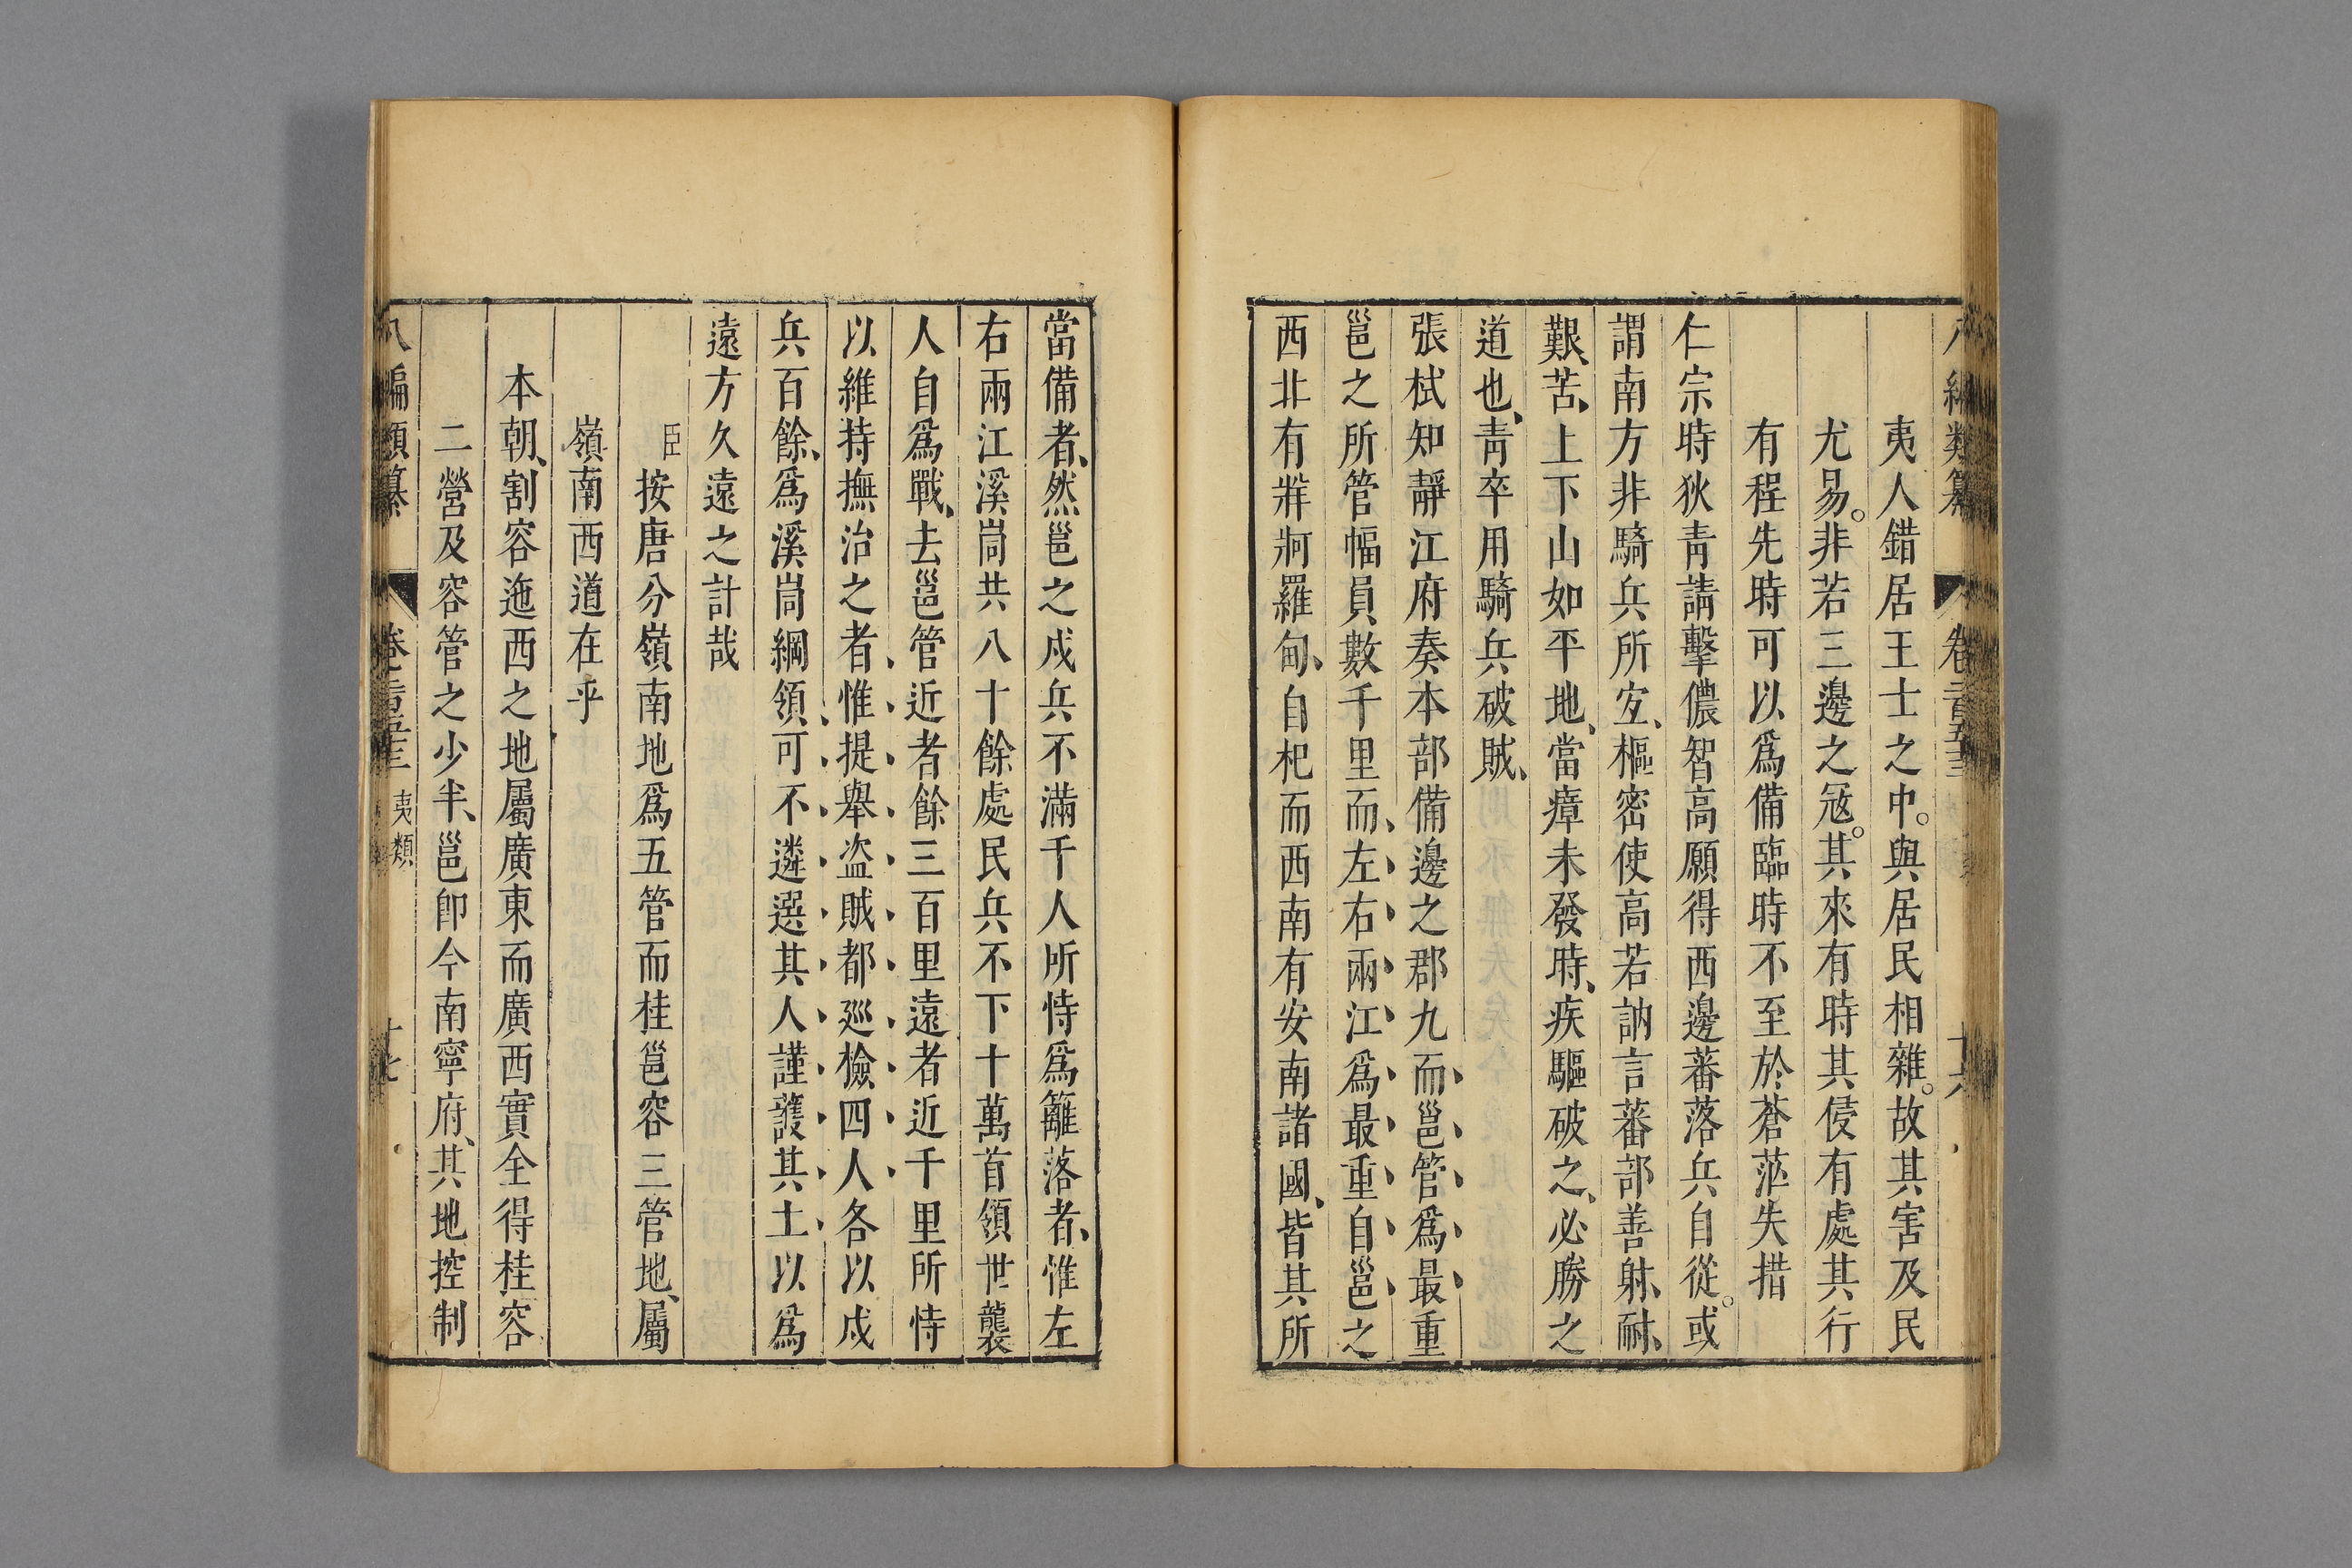 八編類纂 卷二百五十三 十六
夷人錯居王士之中。與居民相雜。故其害及民
尤易。非若三邊之寇。其來有時其侵有處其行
有程先時可以爲備臨時不至於蒼茫失措
仁宗時狄青請擊儂智高願得西邊蕃落兵自從。或
謂南方非騎兵所宐、樞密使高若訥言蕃部善射、耐、
艱、苦、上下山如平地、當瘴未發時、疾驅破之、必勝之
道也、青卒用騎兵破賊、
張栻知靜江府奏本部備邊之郡九而邕管爲最重
邕之所管幅員數千里而左右兩江爲最重自邕之
西北有牂牁羅甸、自杞而西南有安南諸國、皆其所
當備者、然邕之戍兵不滿千人所恃爲籬落者、惟左
右兩江溪峝共八十餘處民兵不下十萬首領世襲
人自爲戰、去邕管近者餘三百里遠者近千里所恃
以維持撫治之者惟提舉盗賊都廵檢四人各以戍
兵百餘、爲溪峝綱領、可不遴選其人謹護其土以爲
遠方久遠之計哉
臣按唐分嶺南地爲五管而桂邕容三管地、屬
嶺南西道在乎
本朝、割容迤西之地屬廣東而廣西實全得桂容
二營及容管之少半、邕卽今南寧府、其地控制
八編類纂 卷二百五十三 夷類 十七